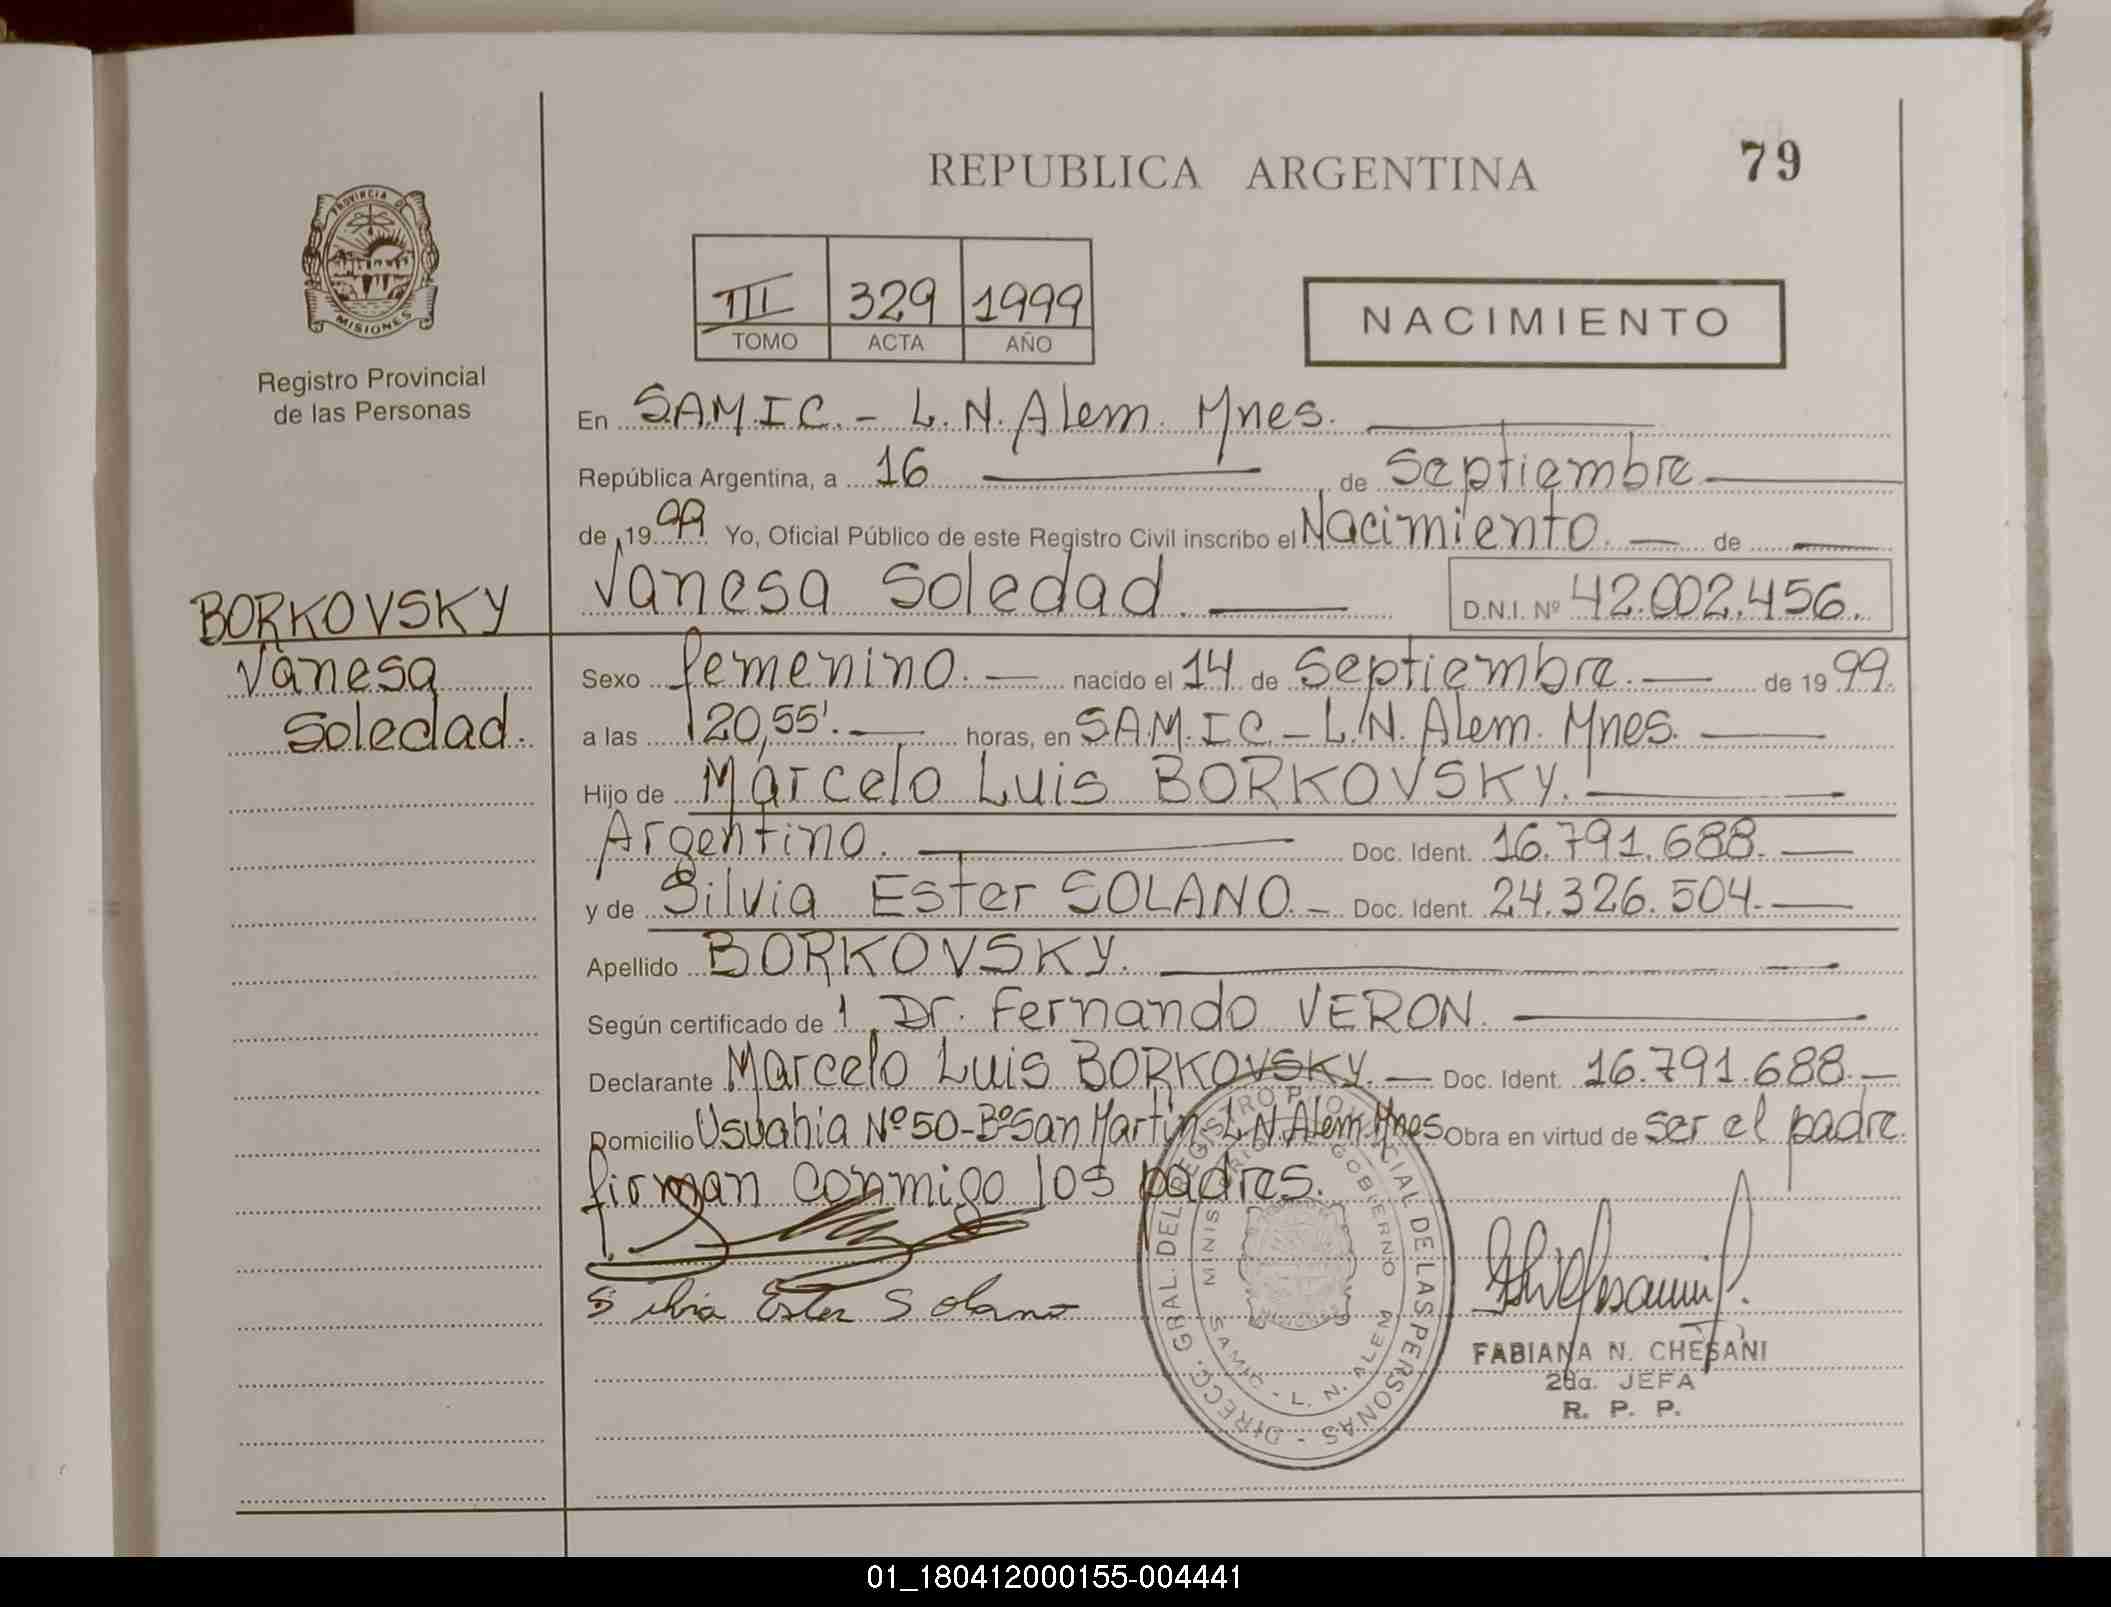 REPUBLICA ARGENTINA
79
PROVINCIA D
MISIONES
Registro Provincial
de las Personas
III 329 1999
TOMO ACTA AÑO
NACIMIENTO
En S.A.M.I.C. - L. N. Alem. Mnes.
República Argentina, a 16 de Septiembre
de 1999 Yo, Oficial Público de este Registro Civil inscribo el Nacimiento. de
Vanesa Soledad. D.N.I. Nº 42.002.456.
BORKOVSKY
Vanesa
Soledad.
Sexo femenino. nacido el 14 de Septiembre. de 1999.
a las 20,55'. horas, en S.A.M.I.C. - L.N. Alem. Mnes.
Hijo de Marcelo Luis BORKOVSKY.
Argentino. Doc. Ident. 16.791.688.
y de Silvia Ester SOLANO. Doc. Ident. 24.326.504.
Apellido BORKOVSKY.
Según certificado de 1 Dr. Fernando VERON.
Declarante Marcelo Luis BORKOVSKY. Doc. Ident. 16.791.688.
Domicilio Usuahia Nº 50-Bº San Martín. L.N Alem. Mnes. Obra en virtud de ser el padre.
firman conmigo los padres.
Silvia Ester Solano
DIRECC. GRAL. DEL REGISTRO PROVINCIAL DE LAS PERSONAS
GOBIERNO
SAMIC - L. N. ALEM
FABIANA N. CHESANI
2da. JEFA
R. P. P.
01_180412000155-004441